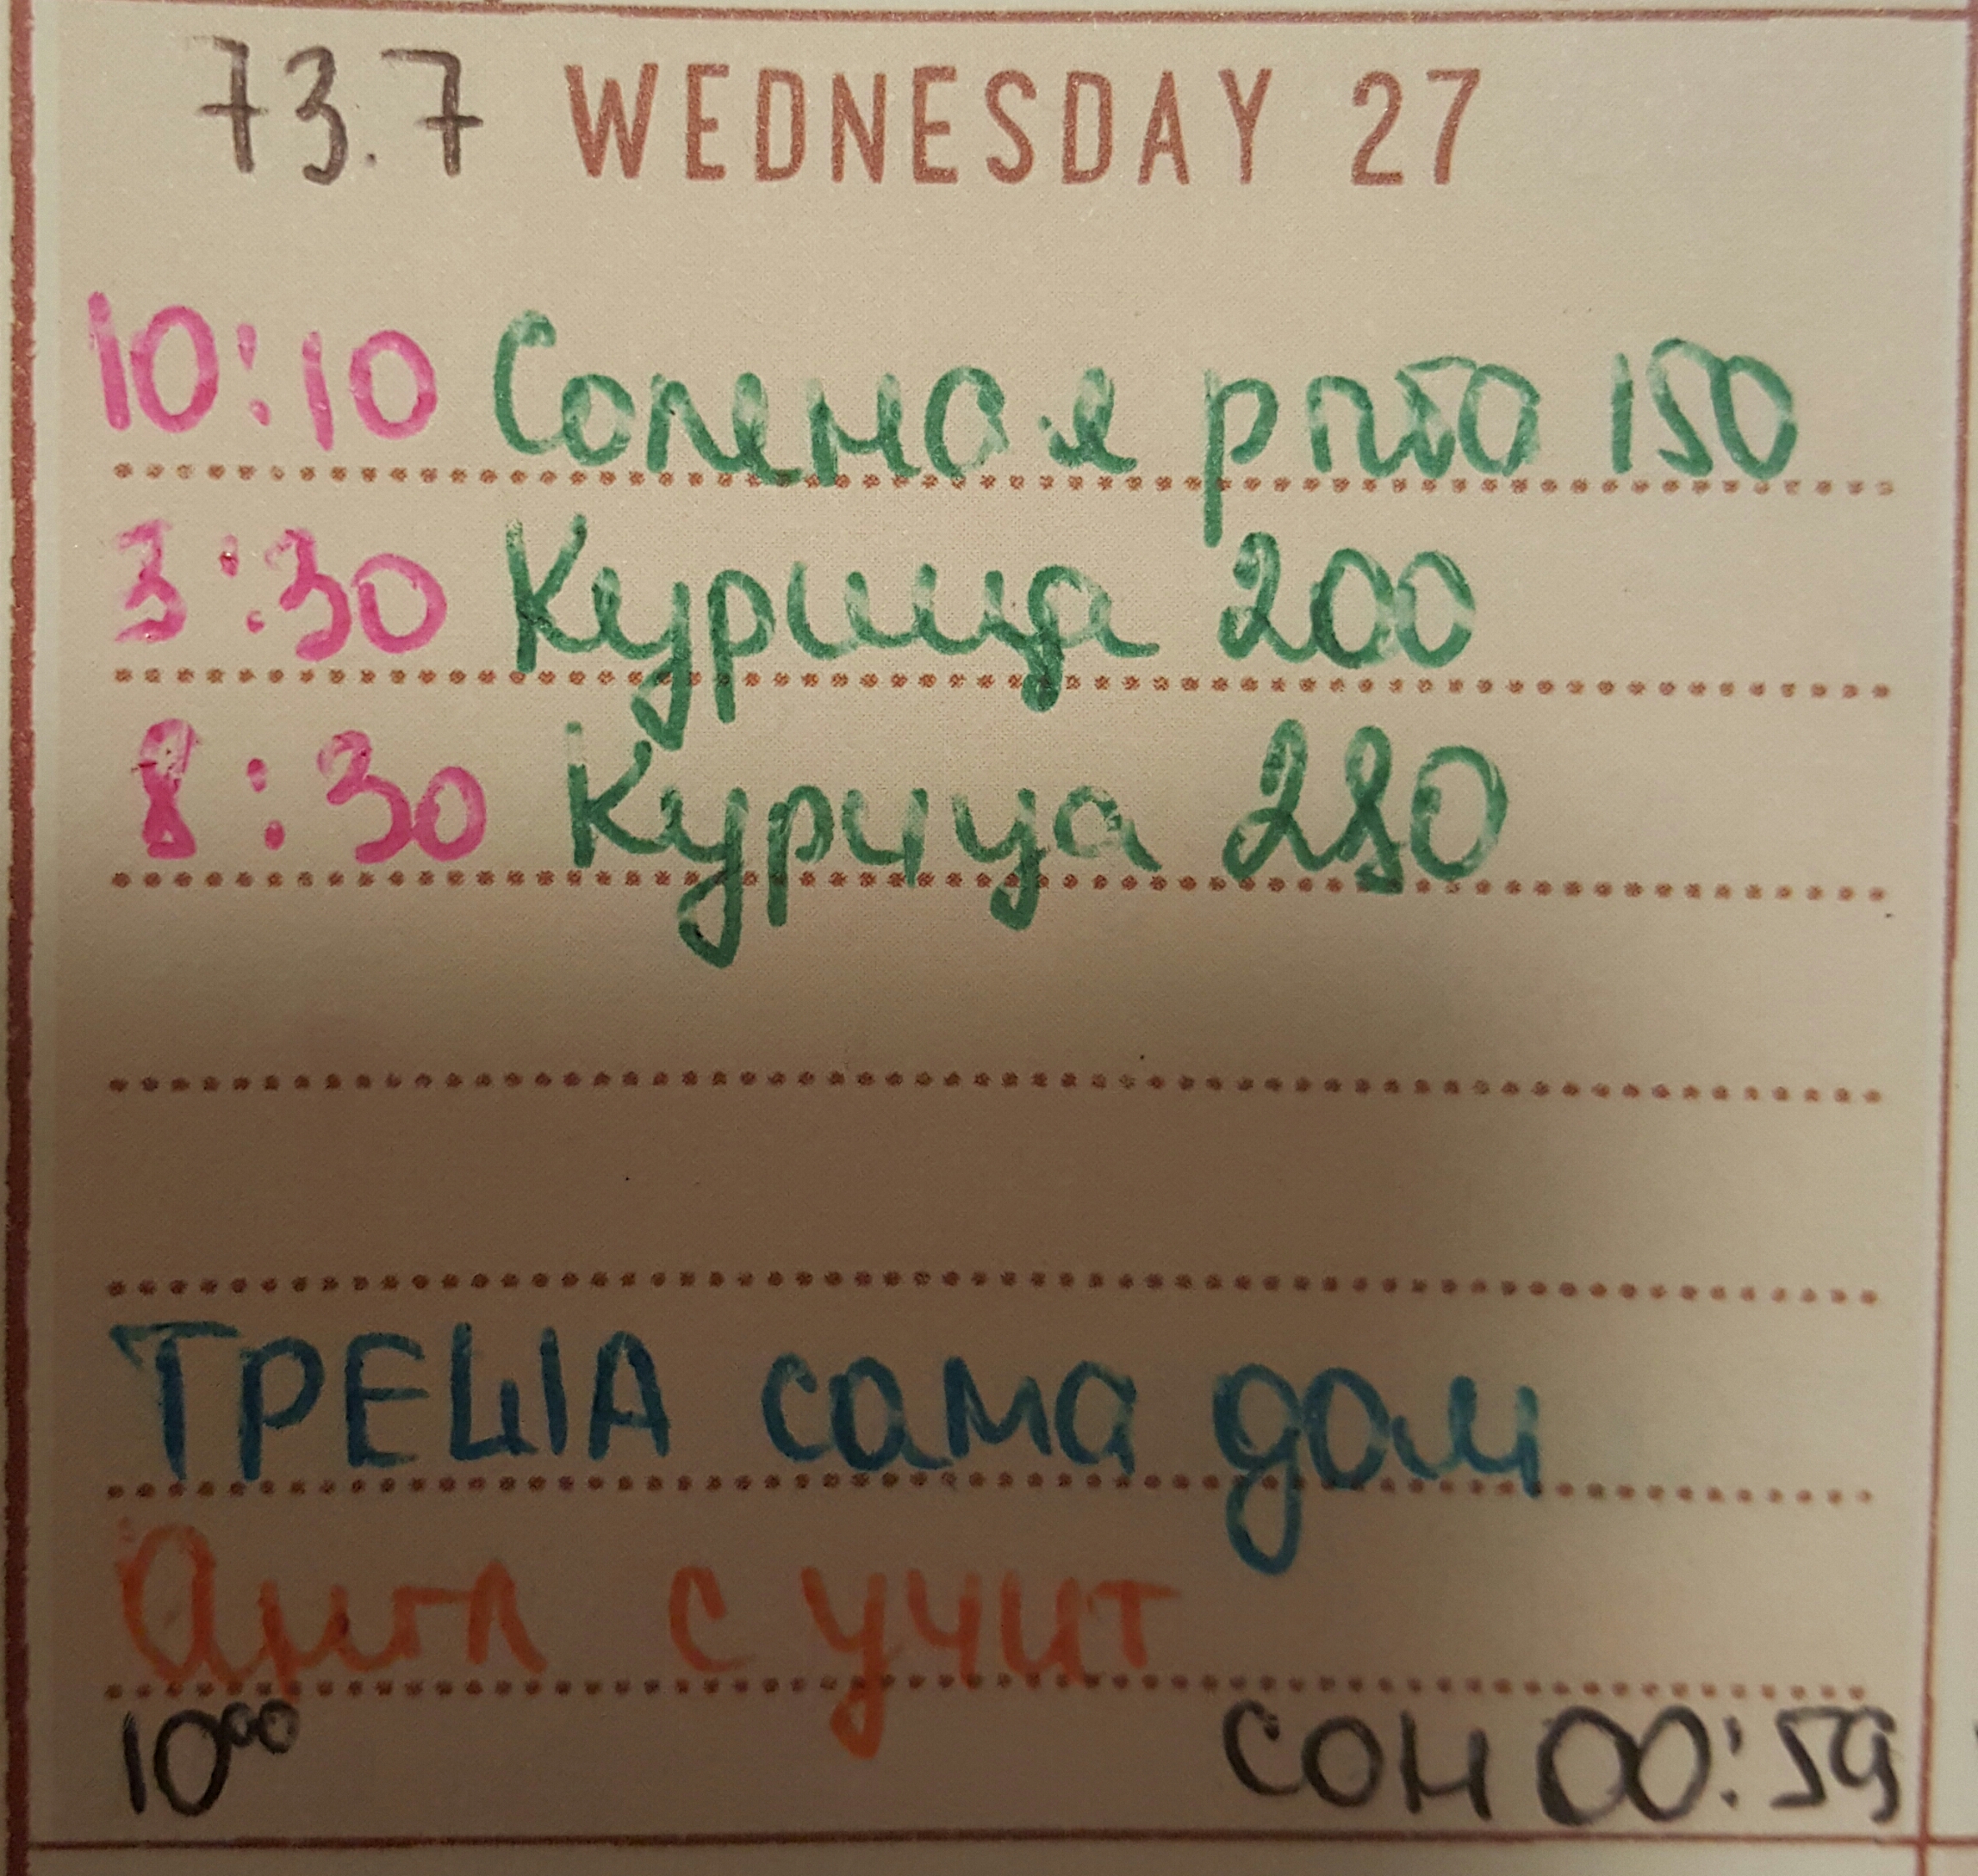 73.7 WEDNESDAY 27
10:10 Соленая рпба 150
3:30 Курица 200
8:30 Курица 280
ТРЕША сама дом
Англ с учит
10⁰⁰ сон 00:59